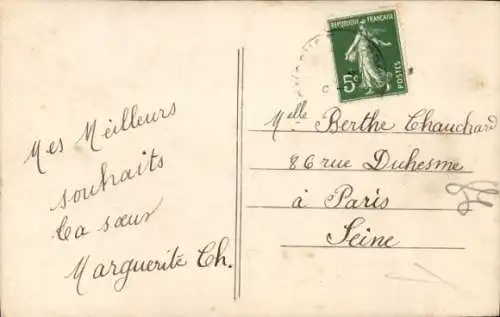 Mes Meilleurs
souhaits
Ta sœur
Marguerite Ch.
REPUBLIQUE FRANÇAISE
5c
POSTES
Melle Berthe Chauchard
86 rue Duhesme
à Paris
Seine